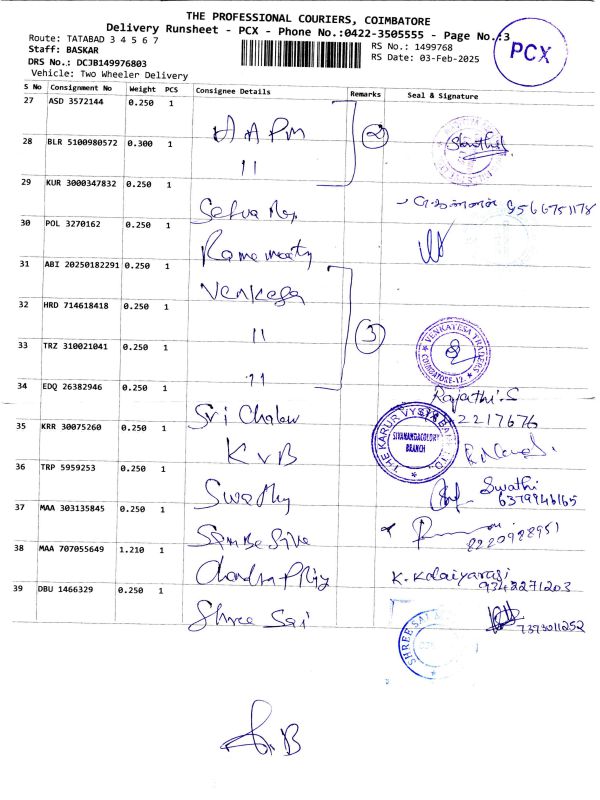 THE PROFESSIONAL COURIERS, COIMBATORE
Delivery Runsheet - PCX - Phone No.:0422-3505555 - Page No.:3
Route: TATABAD 3 4 5 6 7
Staff: BASKAR
DRS No.: DCJB149976803
Vehicle: Two Wheeler Delivery
RS No.: 1499768
RS Date: 03-Feb-2025
PCX
S No Consignment No Weight PCS Consignee Details Remarks Seal & Signature
27 ASD 3572144 0.250 1
28 BLR 5100980572 0.300 1 11
2
29 KUR 3000347832 0.250 1 9566751178
30 POL 3270162 0.250 1
31 ABI 20250182291 0.250 1 Venkesa
32 HRD 714618418 0.250 1 11
3
33 TRZ 310021041 0.250 1 11
VENKATESA TRADERS
COIMBATORE-12.
34 EDQ 26382946 0.250 1 Rajathi.S
2217676
35 KRR 30075260 0.250 1 KVB
THE KARUR VYSYA BANK LTD.
SIVANANDACOLONY
BRANCH
36 TRP 5959253 0.250 1 Swathy Swathi
6379946165
37 MAA 303135845 0.250 1 8220988951
38 MAA 707055649 1.210 1 K. Kalaiyarasi
9348271203
39 DBU 1466329 0.250 1 Shree Sai 7373011252
SHREE SAI